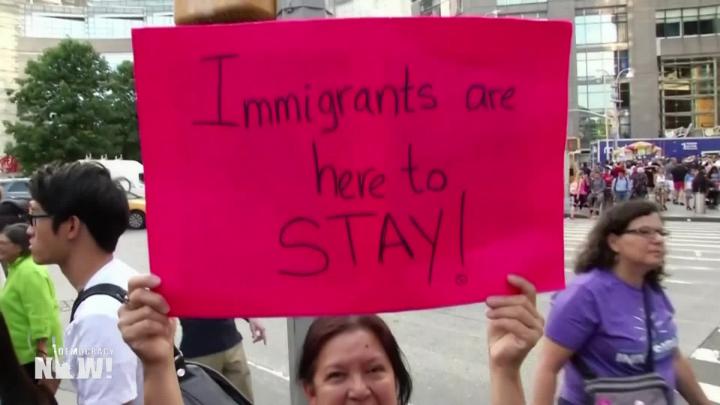 Immigrants are
here to
STAY!
DEMOCRACY
NOW!